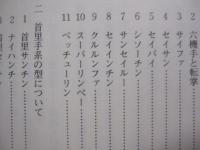 2 六機手と転掌
3 サイファ
4 セイサン
5 セイパイ
6 シソーチン
7 サンセイルー
8 セイインチン
9 クルルンファ
10 スーパーリンペー
11 ペッチューリン
二 首里手系の型について
1 首里サンチン
2 ナイハンチン